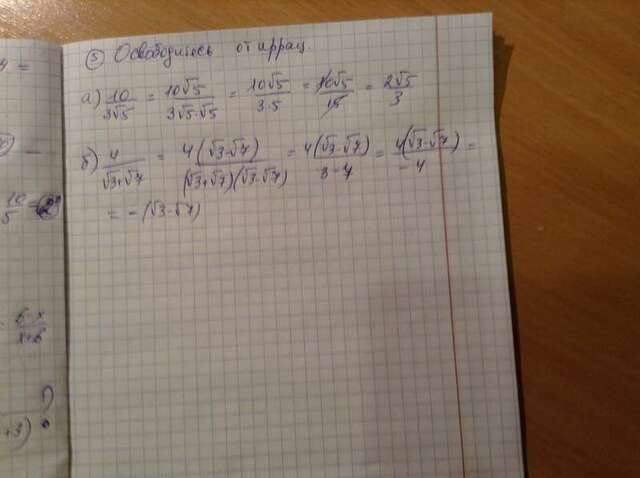 ⑤ Освободитесь от иррац.
а) 10/3√5 = 10√5/3√5·√5 = 10√5/3·5 = 10√5/15 = 2√5/3
б) 4/√3+√7 = 4(√3-√7)/(√3+√7)(√3-√7) = 4(√3-√7)/3-7 = 4(√3-√7)/-4 =
= -(√3-√7)
10/5 =
6-x/x+6
+3)